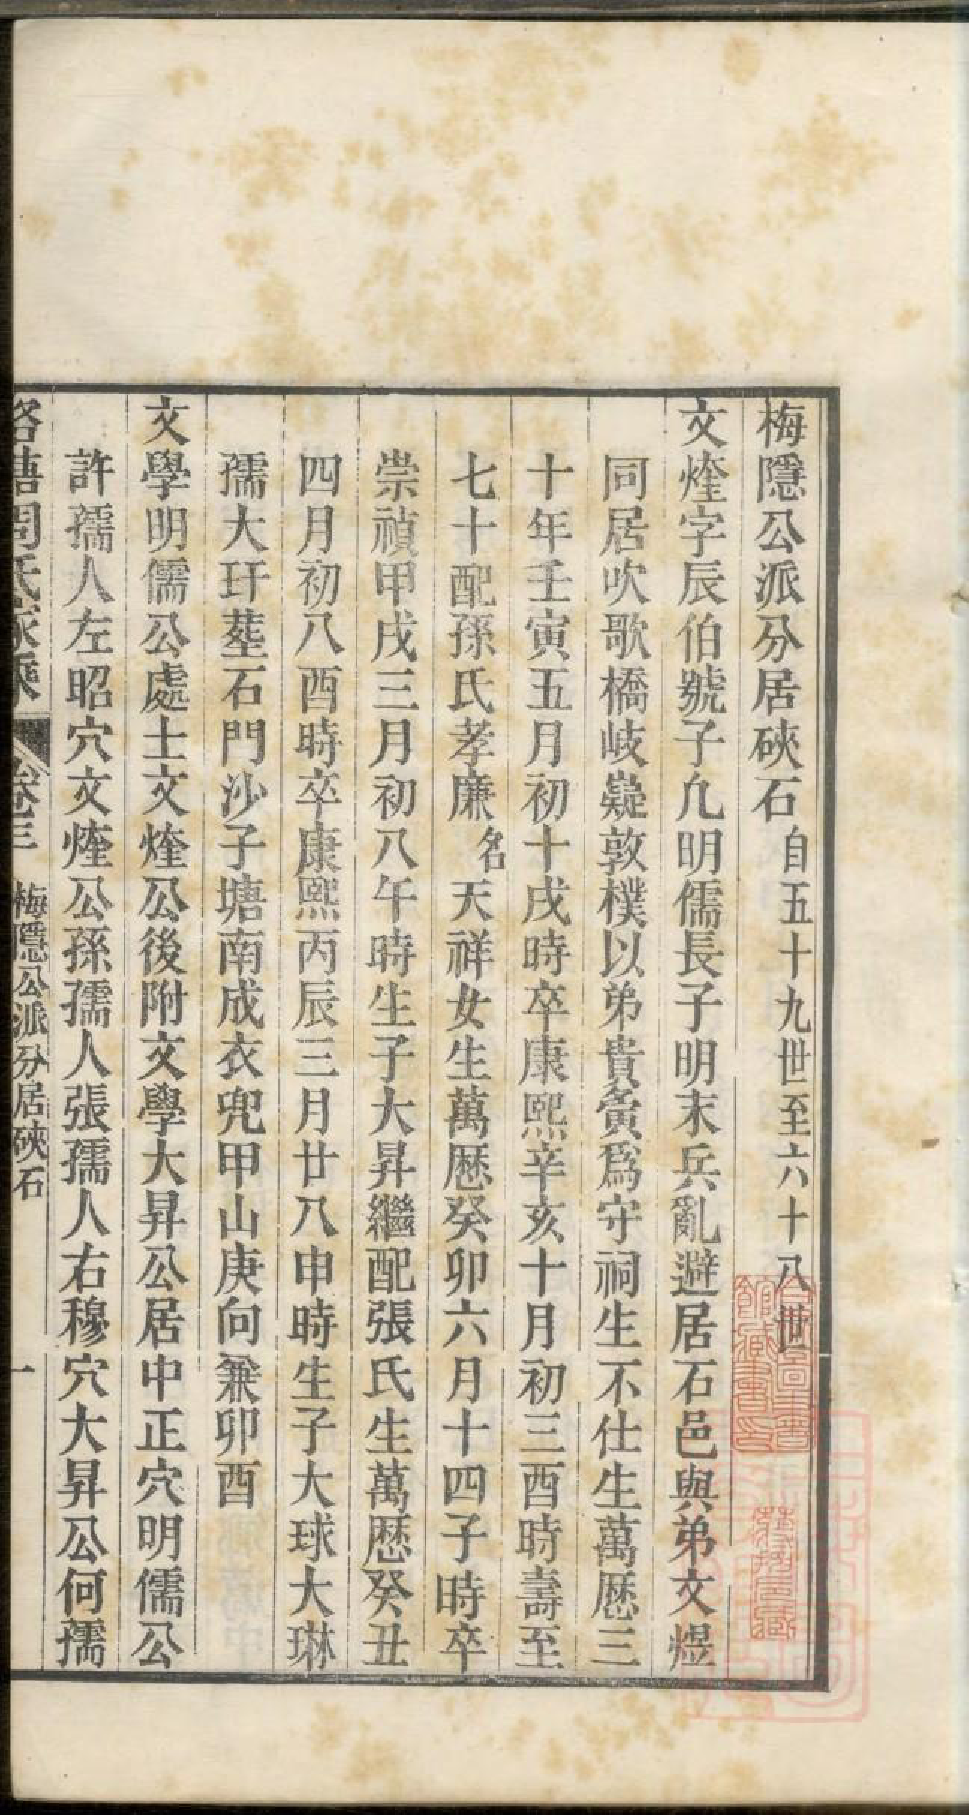 梅隱公派分居硤石自五十九世至六十八世
文煃字辰伯號子凢明儒長子明末兵亂避居石邑與弟文煜
同居吹歌橋岐嶷敦樸以弟貴黃爲守祠生不仕生萬厯三
十年壬寅五月初十戌時卒康熙辛亥十月初三酉時壽至
七十配孫氏孝廉名天祥女生萬厯癸卯六月十四子時卒
崇禎甲戌三月初八午時生子大昇繼配張氏生萬厯癸丑
四月初八酉時卒康熙丙辰三月廿八申時生子大球大琳
孺大玕塟石門沙子塘南成衣兜甲山庚向兼卯酉
文學明儒公處士文煃公後附文學大昇公居中正穴明儒公
許孺人左昭穴文煃公孫孺人張孺人右穆穴大昇公何孺
洛塘周氏家乘 卷三 梅隱公派分居硤石 一